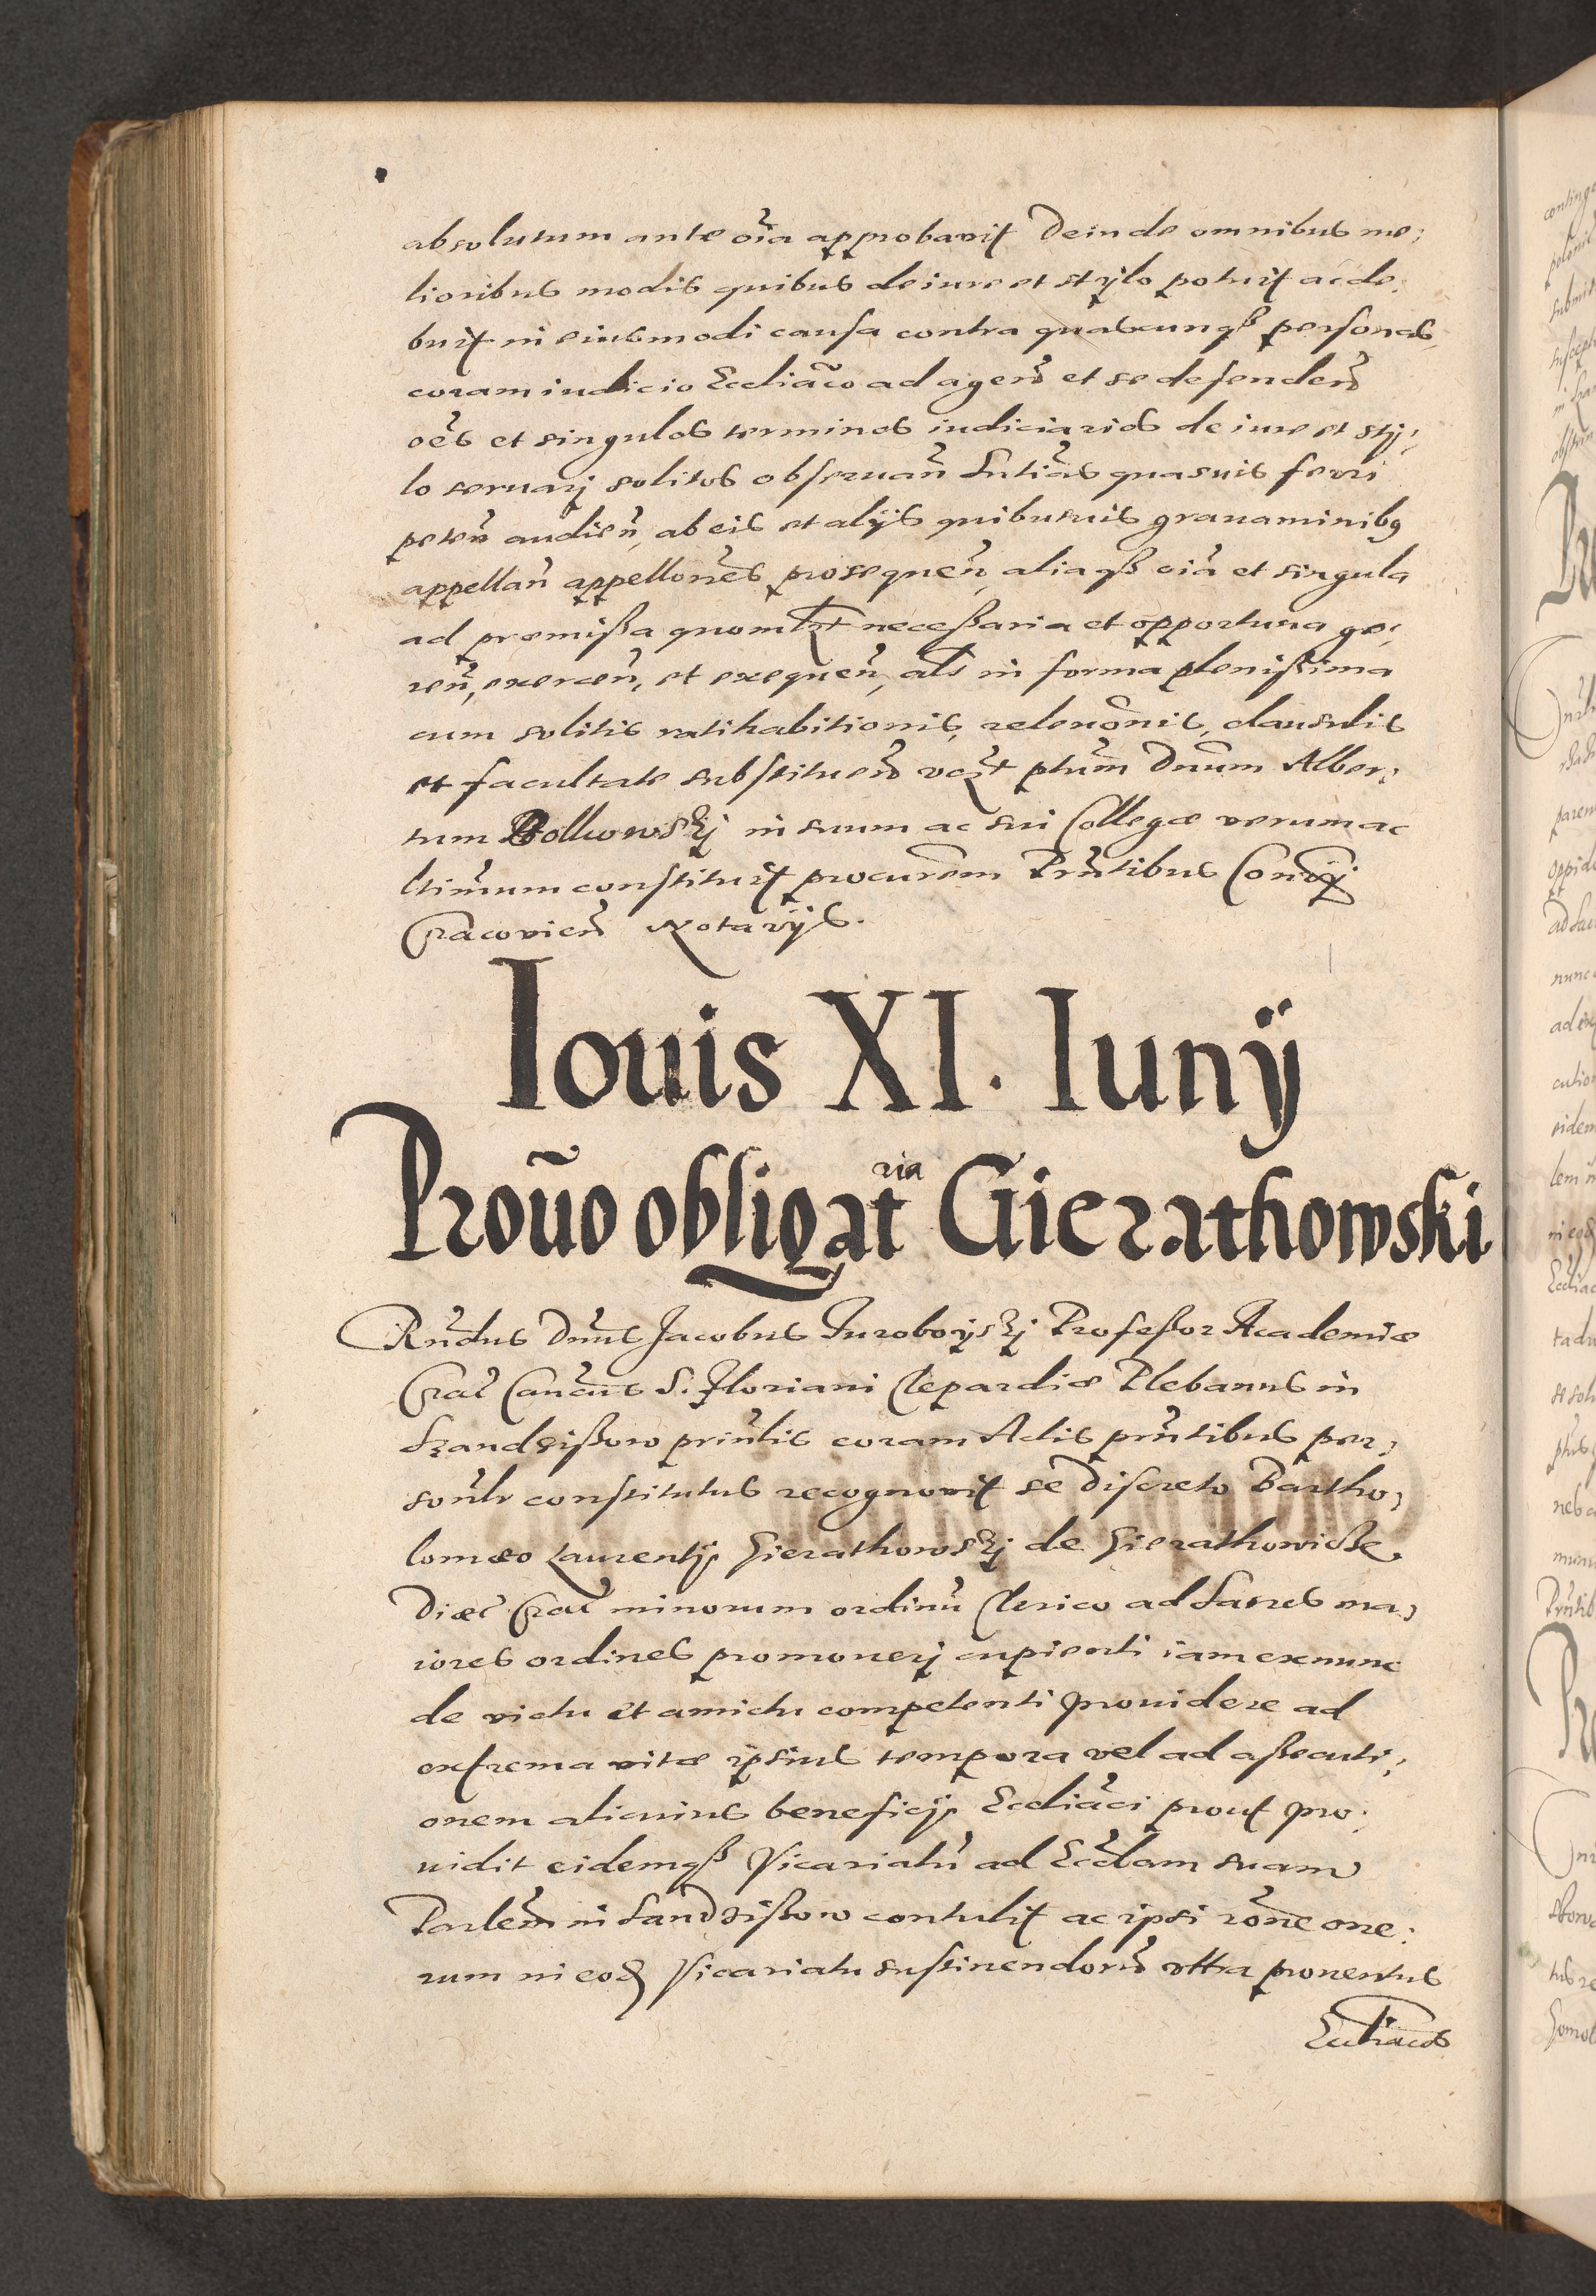 absolutum ante oĩa approbavit Deinde omnibus me:
lioribus modis quibus de iure et stylo potuit ac de:
buit in eiusmodi causa contra quascunq̃ personas,
coram iudicio Eccliãco ad agen̄d et se defenden̄d
oẽs et singulos terminos iudiciarios de iure et sty:
lo seruarj solitos obseruan̄ Sñtias quasuis ferri
peten̄ audien̄, ab eis et alijs quibusuis grauaminibꝯ
appellan̄ appellones prosequen̄, aliaqꝫ oĩa et singula
ad premißa quomłt neceßaria et opportuna ge:
ren̄, exercen̄, et exequen̄, als in forma plenißima
cum solitis ratihabitionis, releuõnis, clausulis
et facultate substituen̄d ptum Dnum Alber:
tum Bolkowskj in suum ac sui Collegæ verum ac
ltimum constituit procurem Prñtibus
Cracovien̄ Notarijs.
Iouis XI. Iunij
Prouõ obligatria Gierathowski
Rñdus Dnus Jacobus Turoboyskj Profeßor Academiæ
Crac̃ Cancus S. Floriani Clepardiæ Plebanus in
Szandzißow prinlis coram Actis prñtibus per:
sonlr constitutus recognovit se Discreto Bartho:
lomæo Laurentij Gierathowskj de Gierathowicze
Diæc̃ Crac̃ minorum ordinũ Clerico ad Sacros ma:
iores ordines promouerj cupienti iam ex nunc
de victu et amictu competenti prouidere ad
extrema vitæ ipsius tempora vel ad aßecuti:
onem alicuius beneficij Eccliãci prout pro:
uidit eidemqꝫ Vicariatũ ad Ecclam suam
Parlem in Sandzißow contulit ac ipsi rõne one:
rum in eod Vicariatu sustinendorũ vltra prouentus
Eccliacos